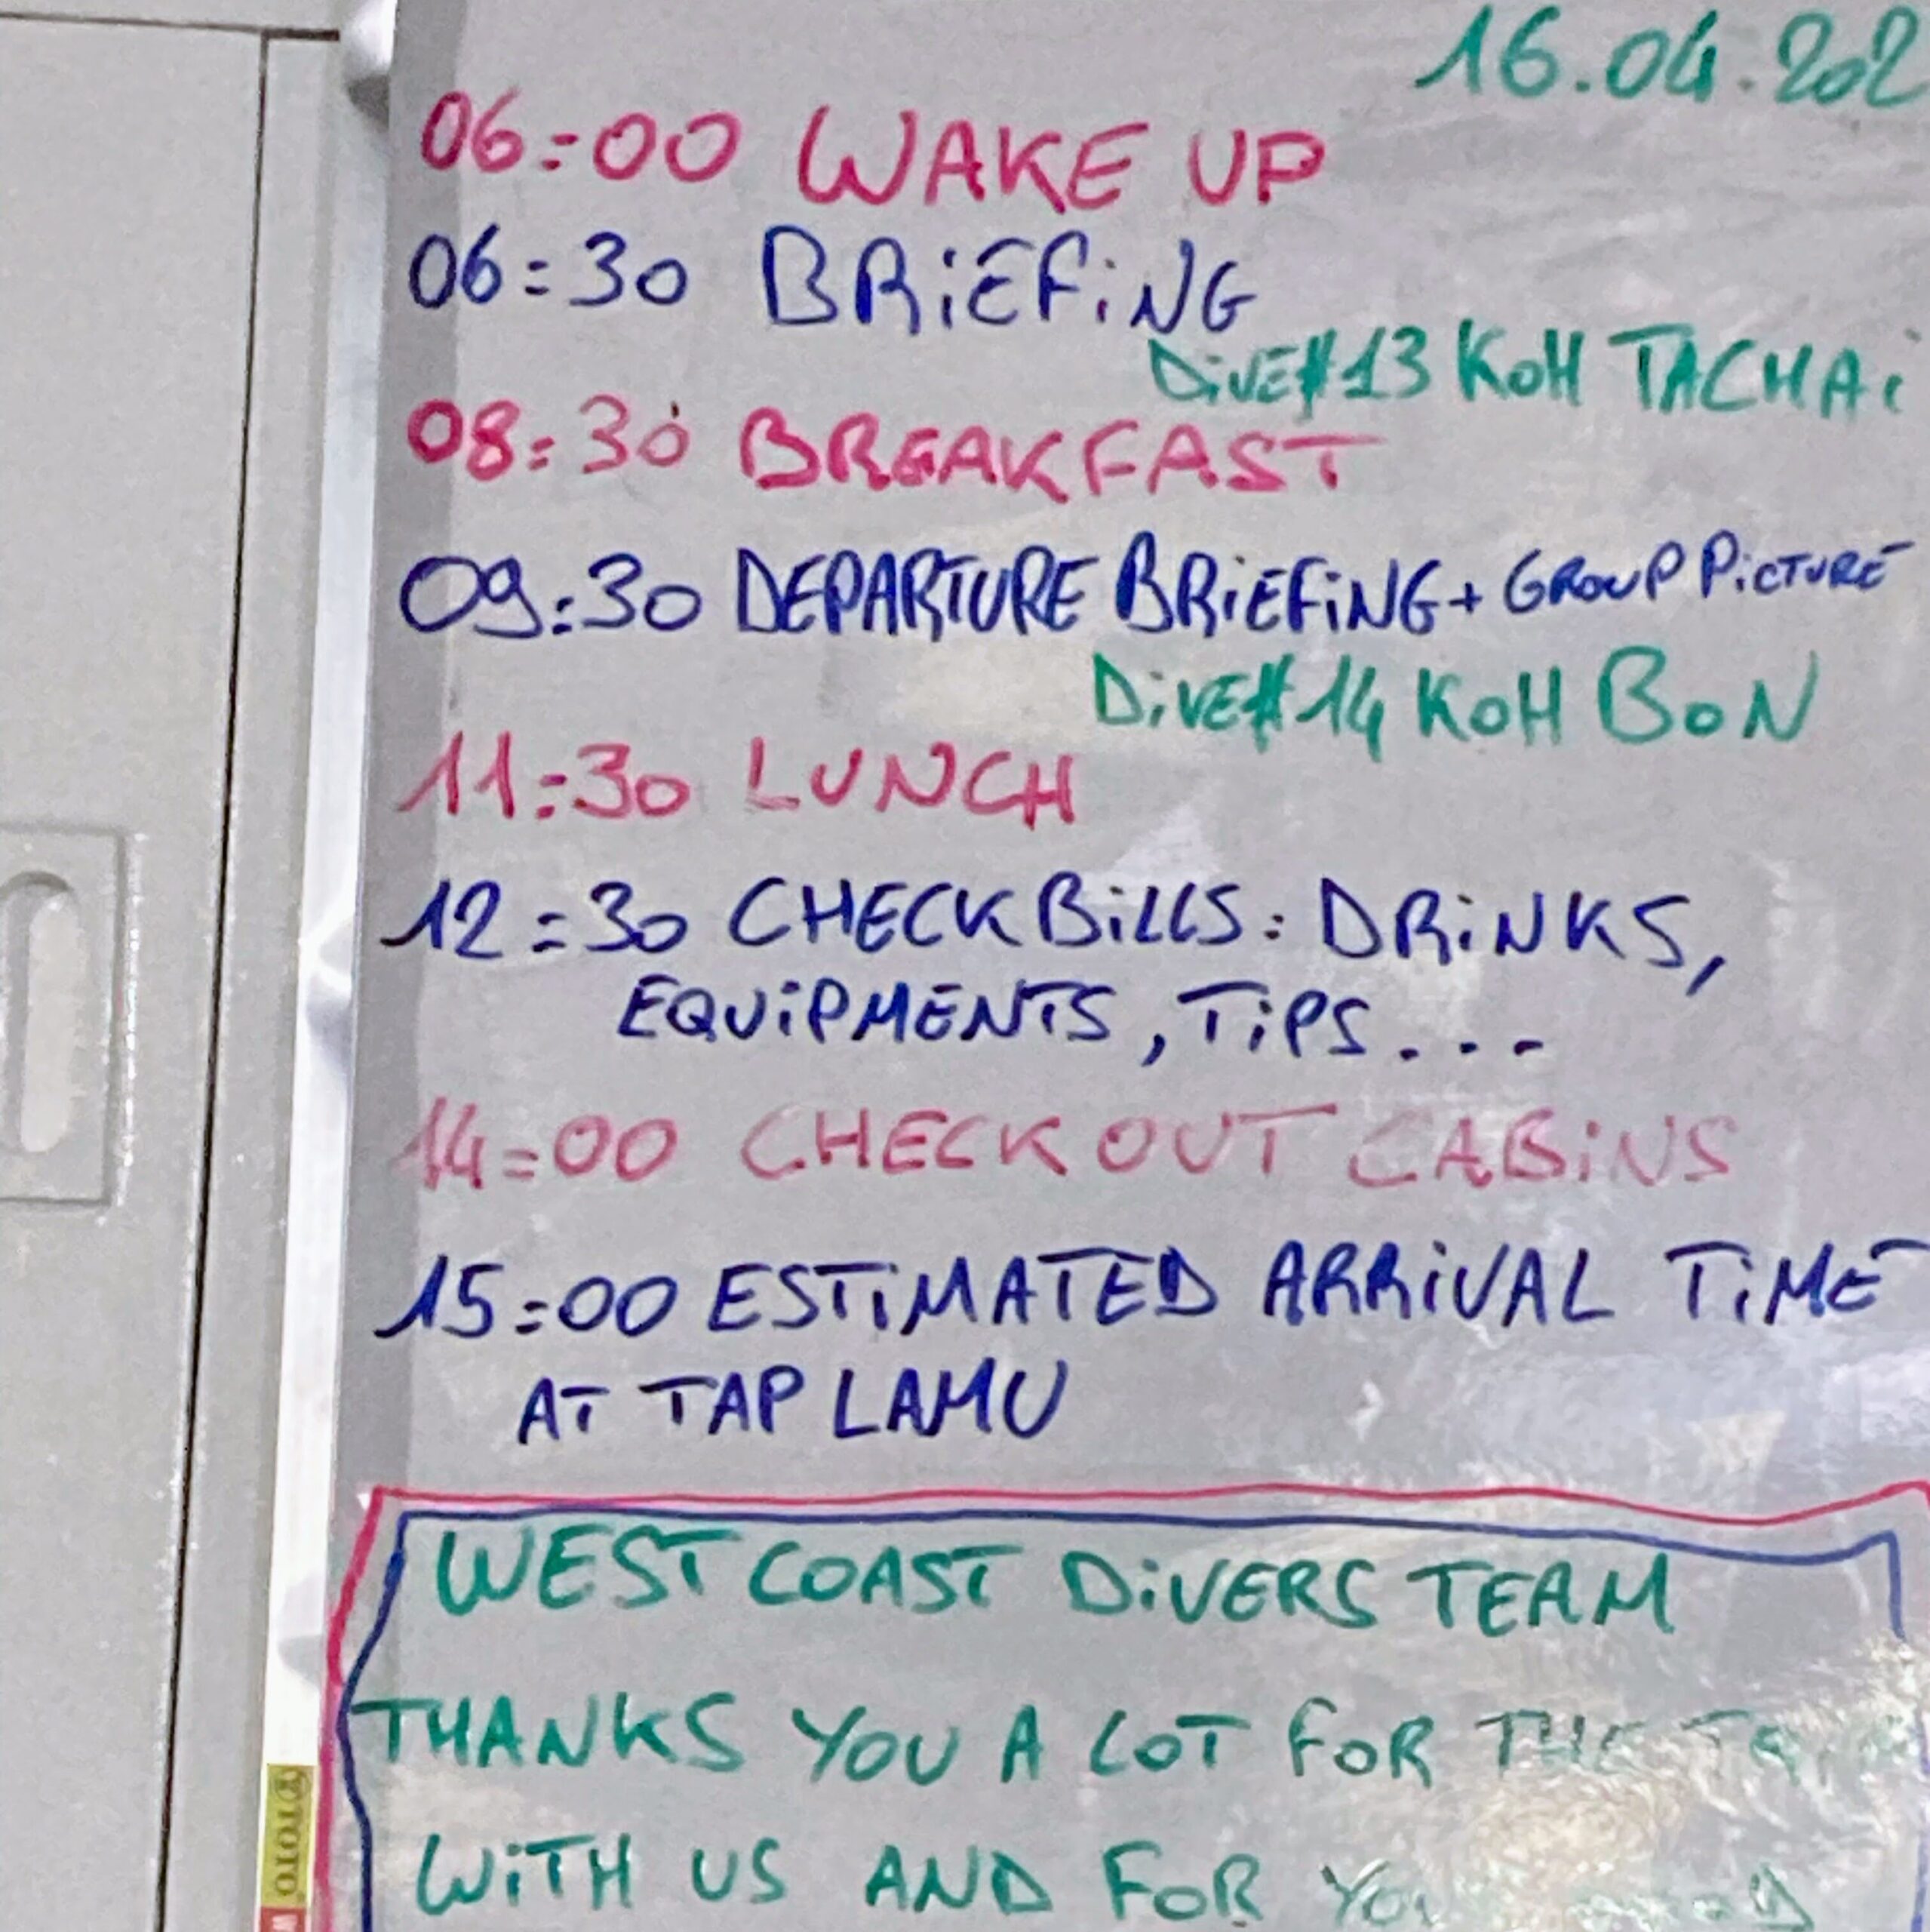 16.04.202
06:00 WAKE UP
06:30 BRIEFING
DIVE#13 KOH TACHAI
08:30 BREAKFAST
09:30 DEPARTURE BRIEFING + GROUP PICTURE
DIVE#14 KOH BON
11:30 LUNCH
12:30 CHECK BILLS: DRINKS,
EQUIPMENTS, TIPS...
14:00 CHECK OUT CABINS
15:00 ESTIMATED ARRIVAL TIME
AT TAP LAMU
WEST COAST DIVERS TEAM
THANKS YOU A LOT FOR THE
WITH US AND FOR
TOTO